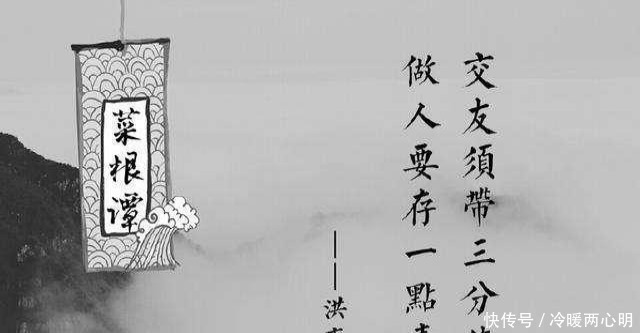 交友須帶三分
做人要存一點
——洪
菜根谭
快传号／冷暖两心明